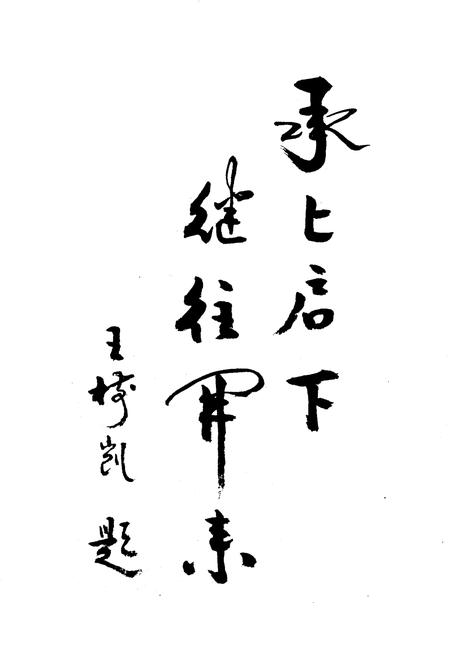 承上启下
继往开来
王梼凯 题